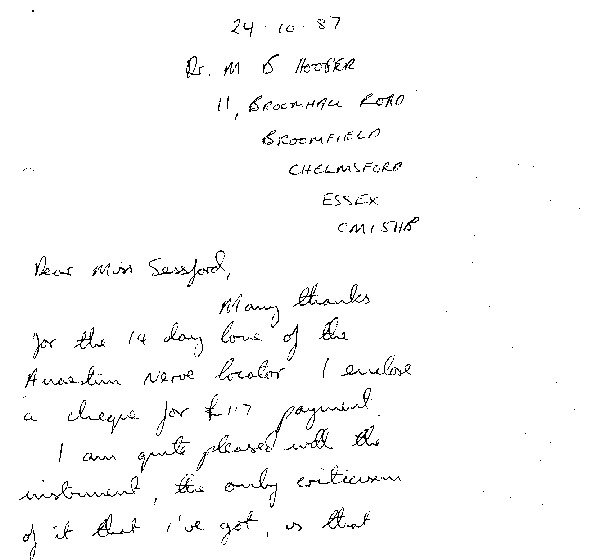 24.10.87
Dr. M B HOOPER
11, BROOMHALL ROAD
BROOMFIELD
CHELMSFORD
ESSEX
CM1 5HB
Dear Miss Sessford,
Many thanks
for the 14 day lone of the
nerve locator I enclose
a cheque for £117 payment.
I am quite pleased with the
instrument, the only criticism
of it that I've got, is that